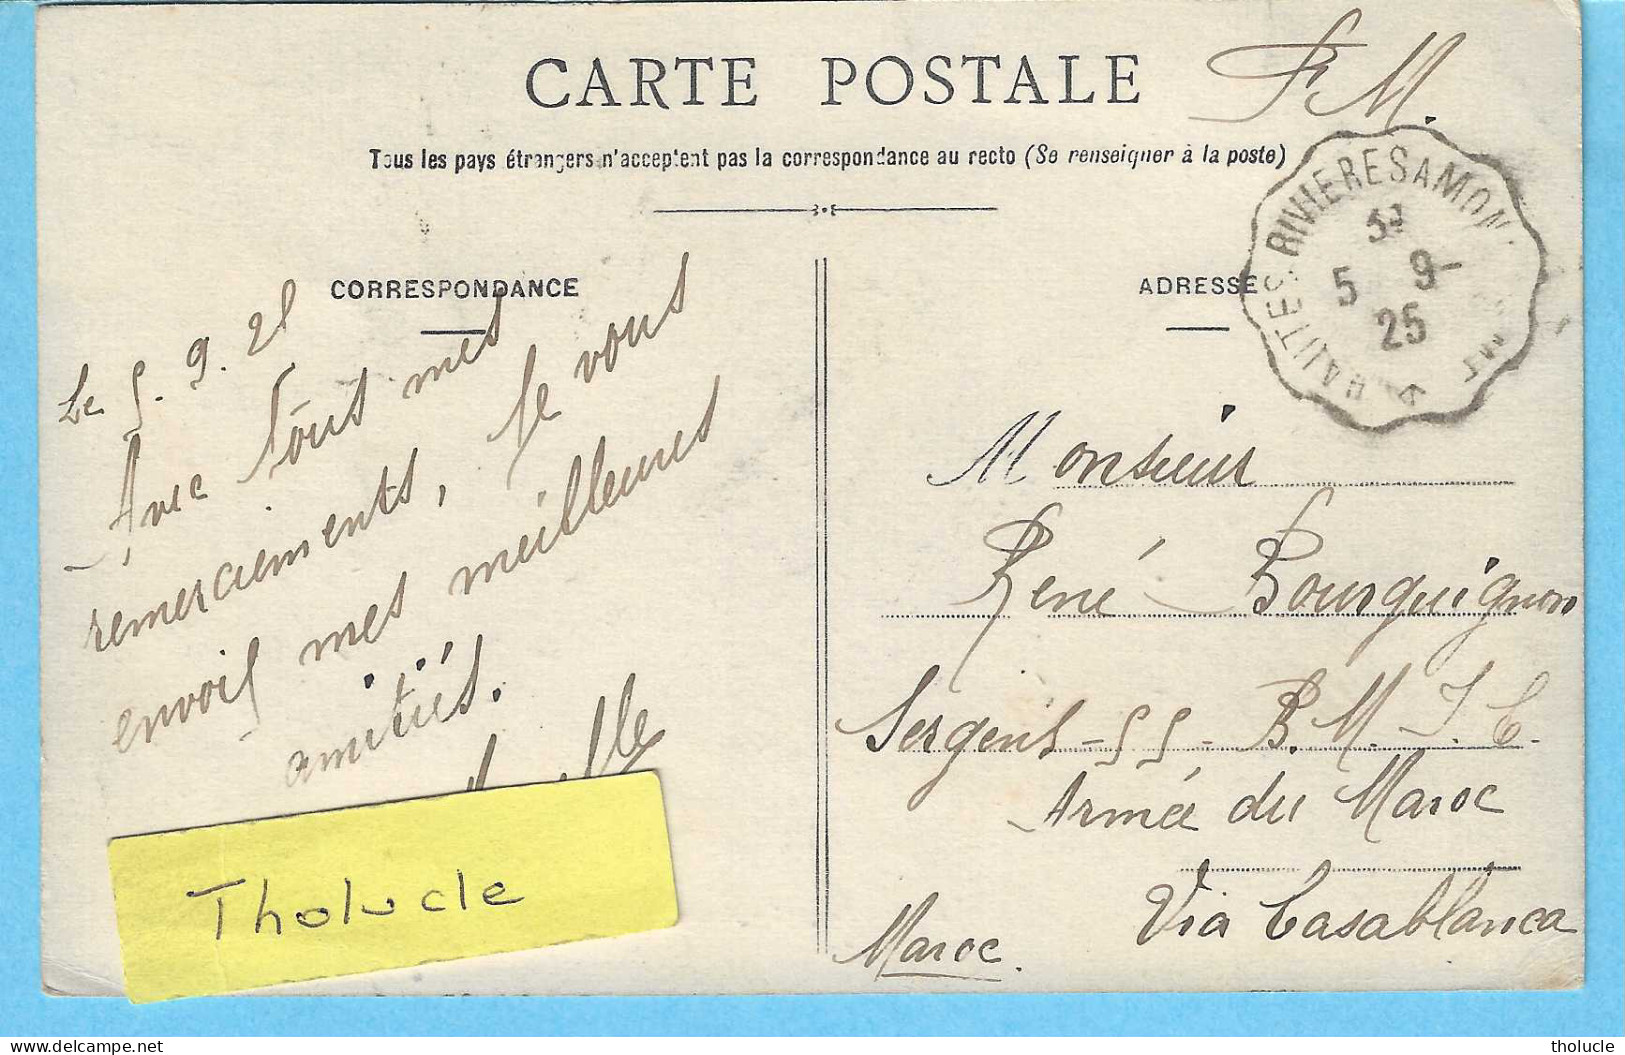 CARTE POSTALE
F.M.
Tous les pays étrangers n'acceptent pas la correspondance au recto (Se renseigner à la poste)
CORRESPONDANCE
Le 5.9.25
Avec tous mes
remerciements, je vous
envoi mes meilleures
amitiés.
Tholucle
ADRESSE
HAUTES RIVIERES A MON
3º
5 9-
25
Monsieur
René Bourguignon
Sergent - 55 - B.M.I.C.
Armée du Maroc
Via Casablanca
Maroc.
delcampe.net
tholucle